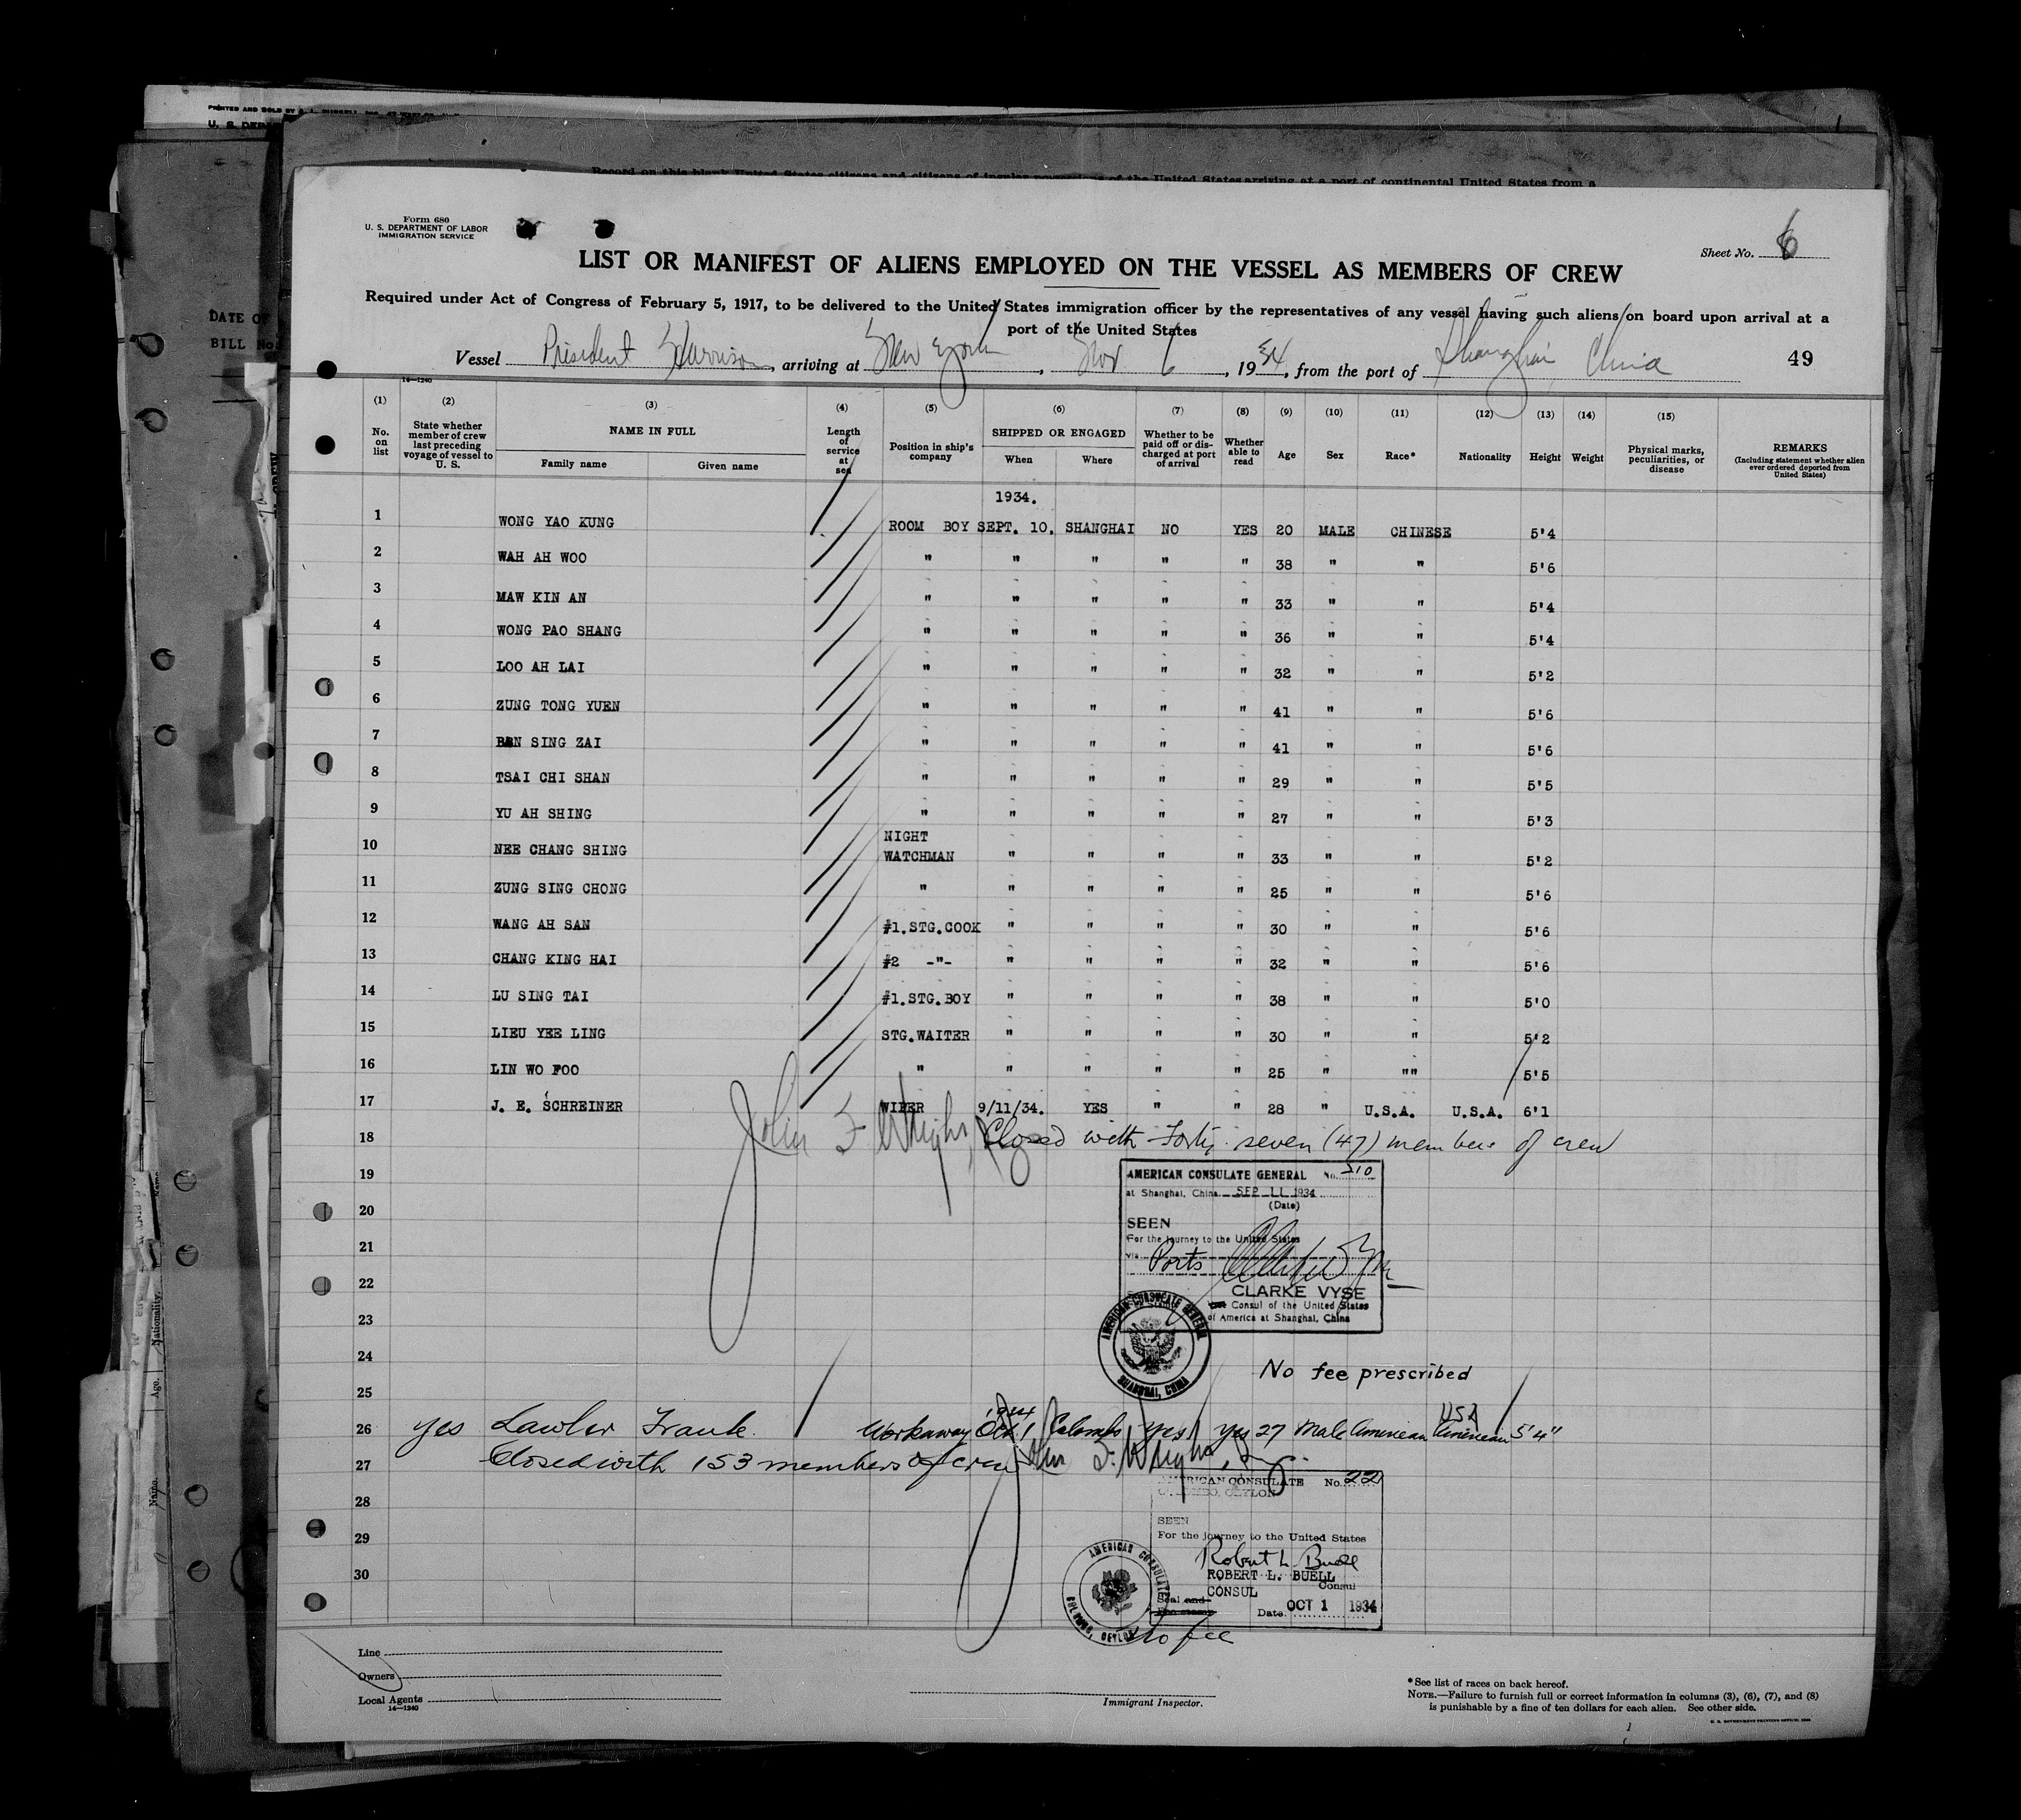 PRINTED AND SOLD BY
U. S. DEPA
Record on this blank United States citizens and citizens of insular possessions of the United States arriving at a port of continental United States from a
DATE OF
BILL No.
Form 680
U. S. DEPARTMENT OF LABOR
IMMIGRATION SERVICE
Sheet No. 6
LIST OR MANIFEST OF ALIENS EMPLOYED ON THE VESSEL AS MEMBERS OF CREW
Required under Act of Congress of February 5, 1917, to be delivered to the United States immigration officer by the representatives of any vessel having such aliens on board upon arrival at a
port of the United States
Vessel President Harrison, arriving at New York, Nov. 6, 1934, from the port of Shanghai, China 49
14—1240
(1) (2) (3) (4) (5) (6) (7) (8) (9) (10) (11) (12) (13) (14) (15)
No. on list
State whether member of crew last preceding voyage of vessel to U. S.
NAME IN FULL
Family name Given name
Length of service at sea
Position in ship's company
SHIPPED OR ENGAGED
When Where
Whether to be paid off or discharged at port of arrival
Whether able to read
Age Sex Race* Nationality Height Weight
Physical marks, peculiarities, or disease
REMARKS
(Including statement whether alien ever ordered deported from United States)
1934.
1 WONG YAO KUNG ROOM BOY SEPT. 10. SHANGHAI NO YES 20 MALE CHINESE 5'4
2 WAH AH WOO " " " " " 38 " " 5'6
3 MAW KIN AN " " " " " 33 " " 5'4
4 WONG PAO SHANG " " " " " 36 " " 5'4
5 LOO AH LAI " " " " " 32 " " 5'2
6 ZUNG TONG YUEN " " " " " 41 " " 5'6
7 SING ZAI " " " " " 41 " " 5'6
8 TSAI CHI SHAN " " " " " 29 " " 5'5
9 YU AH SHING " " " " " 27 " " 5'3
10 NEE CHANG SHING NIGHT WATCHMAN " " " " 33 " " 5'2
11 ZUNG SING CHONG " " " " " 25 " " 5'6
12 WANG AH SAN #1.STG.COOK " " " " 30 " " 5'6
13 CHANG KING HAI #2 -"- " " " " 32 " " 5'6
14 LU SING TAI #1.STG.BOY " " " " 38 " " 5'0
15 LIEU YEE LING STG.WAITER " " " " 30 " " 5'2
16 LIN WO FOO " " " " " 25 " "" 5'5
17 J. E. SCHREINER WIPER 9/11/34. YES " " 28 " U.S.A. U.S.A. 6'1
18 Closed with Forty-seven (47) members of crew
19
20
21
22
23
24
25
AMERICAN CONSULATE GENERAL No. 510
at Shanghai, China SEP 11 1934
(Date)
SEEN
For the journey to the United States
via Ports
CLARKE VYSE
Consul of the United States
of America at Shanghai, China
AMERICAN CONSULATE GENERAL
SHANGHAI, CHINA
No fee prescribed
26 yes Lawler Frank. Workaway 1934 Oct. 1 Colombo Yes Yes 27 Male American USA American 5'4"
27 Closed with 153 members of crew
28
29
30
AMERICAN CONSULATE No. 22
COLOMBO, CEYLON
SEEN
For the journey to the United States
Robert L. Buell
ROBERT L. BUELL
Consul
CONSUL
Seal and
Date OCT 1 1934
AMERICAN CONSULATE
COLOMBO, CEYLON
No fee
Line
Owners
Local Agents
14—1240
Immigrant Inspector.
* See list of races on back hereof.
NOTE.—Failure to furnish full or correct information in columns (3), (6), (7), and (8)
is punishable by a fine of ten dollars for each alien. See other side.
U. S. GOVERNMENT PRINTING OFFICE
Nationality.
Age.
Name.